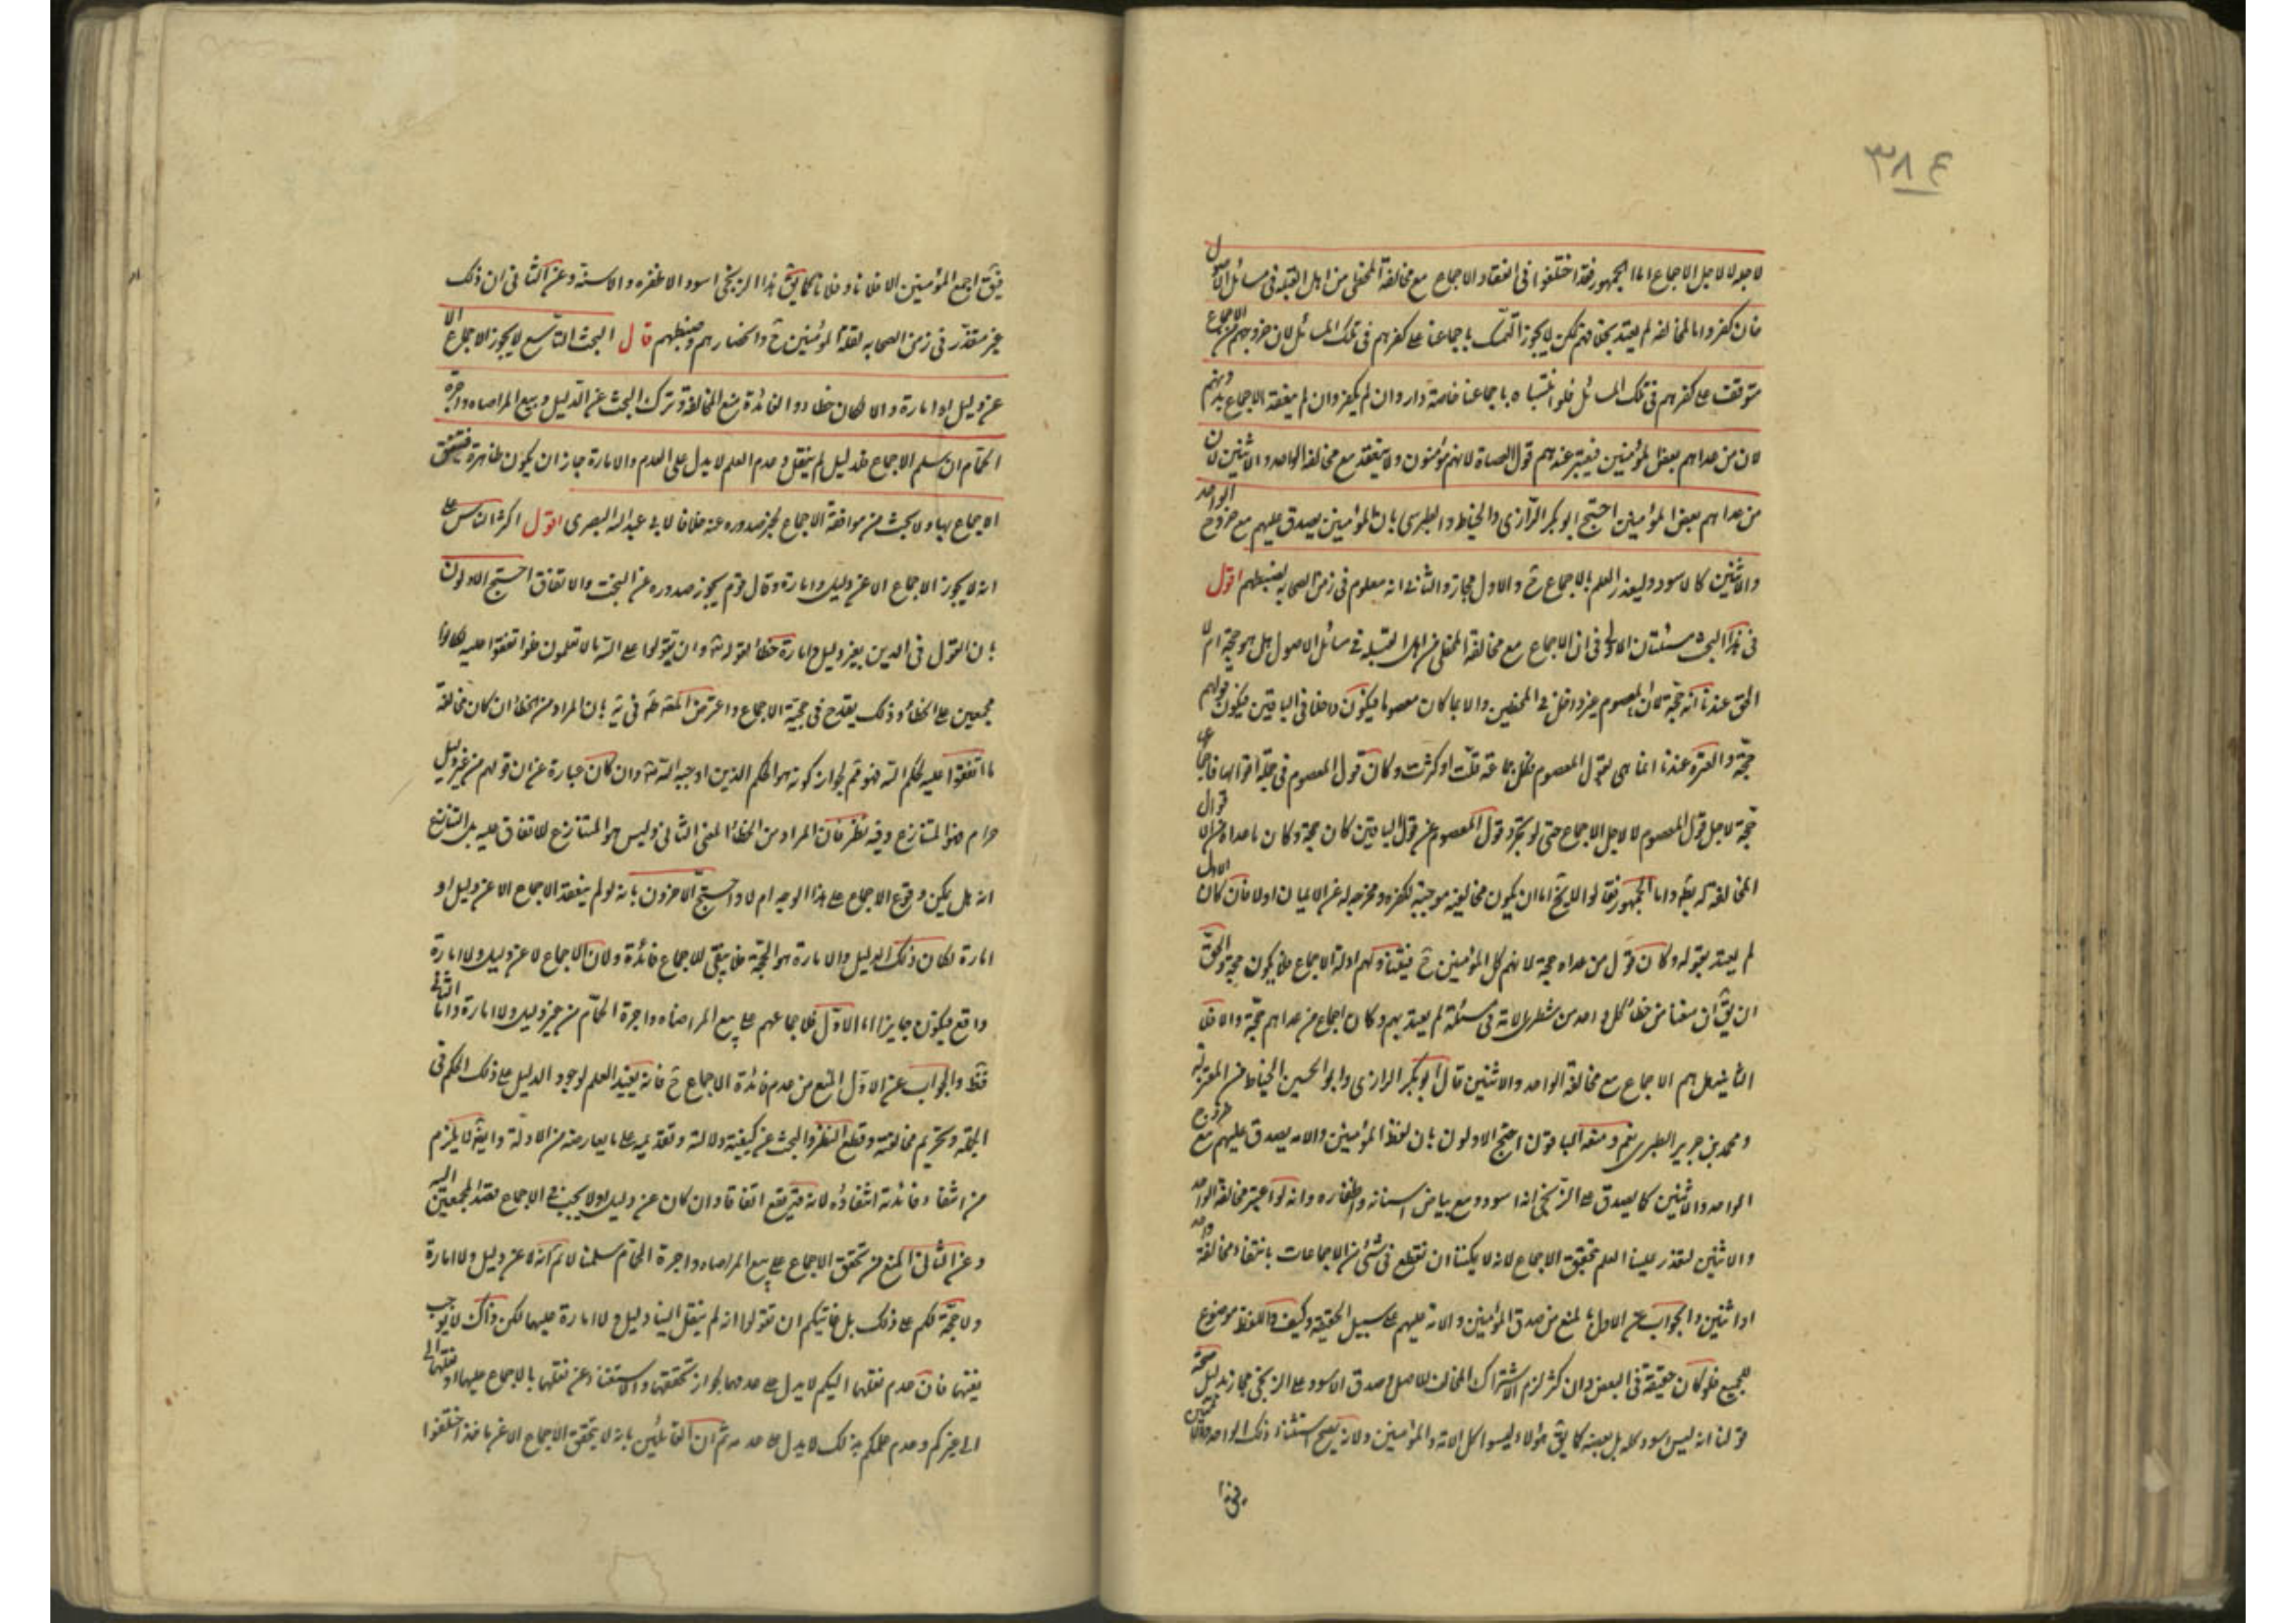 ٣٨٤
لاجله لا لاجل الاجماع اما الجمهور فقد اختلفوا فى انعقاد الاجماع مع مخالفة المخطى من اهل القبلة فى مسائل الاصول
فان كفروا بالمخالفه لم يعتد بخلافهم لكن لا يجوز التمسك باجماعنا على كفرهم فى تلك المسائل لان خروجهم من الاجماع
متوقف على كفرهم فى تلك المسائل فلو اثبتناه باجماعنا خاصة دار وان لم يكفروا لم ينعقد الاجماع بدونهم
لان من عداهم بعض المؤمنين فيعتبر عندهم قول العصاة لانهم مؤمنون ولا ينعقد مع مخالفة الواحد والاثنين لان
من عداهم بعض المؤمنين احتج ابو بكر الرازى والخياط والطبرى بان المؤمنين يصدق عليهم مع خروج الواحد
والاثنين كالاسود وليعذر العلم بالاجماع ح والاول مجاز والثانى انه معلوم فى زمن الصحابة لضبطهم اقول
فى هذا البحث مسئلتان الاولى فى ان الاجماع مع مخالفة المخطى من اهل القبلة فى مسائل الاصول هل هو حجة ام لا
الحق عندنا انه حجة لان المعصوم غير داخل فى المخطين والا لما كان معصوما فيكون داخلا فى الباقين فيكون قولهم
حجة والعبرة عندنا انما هى بقول المعصوم فكل جماعة قلت او كثرت وكان قول المعصوم فى جملة اقوالها فاجماعها
حجة لاجل قول المعصوم لا لاجل الاجماع حتى لو تجرد قول المعصوم عن قول الباقين كان حجة وكان ما عداه من الاقوال
المخالفة له بط واما الجمهور فقالوا لا يخ اما ان يكون مخالفته موجبة لكفره ومخرجه له عن الايمان او لا فان كان الاول
لم يعتد بقوله وكان قول من عداه حجة لانهم كل المؤمنين ح فيتناولهم ادلة الاجماع فيكون حجة والحق
ان يق ان منعنا من خطا كل واحد من شطرى الامة فى مسئلة لم يعتد بهم وكان اجماع من عداهم حجة والا فلا
الثانية هل يتم الاجماع مع مخالفة الواحد والاثنين قال ابو بكر الرازى وابو الحسين الخياط من المعتزلة
ومحمد بن جرير الطبرى نعم ومنعه الباقون احتج الاولون بان لفظ المؤمنين والامه يصدق عليهم مع خروج
الواحد والاثنين كما يصدق على الزنجى انه اسود مع بياض اسنانه واظفاره وانه لو اعتبر مخالفة الواحد
والاثنين لتعذر علينا العلم بتحقق الاجماع لانه لا يمكننا ان نقطع فى شئ من الاجماعات بانتفاء مخالفة واحد
او اثنين والجواب عن الاول بالمنع من صدق المؤمنين والامة عليهم على سبيل الحقيقة وكيف واللفظ موضوع
للجميع فلو كان حقيقة فى البعض وان كثر لزم الاشتراك المخالف للاصل وصدق الاسود على الزنجى مجاز بدليل صحة
قولنا انه ليس اسود كله بل بعضه كما يق هؤلاء ليسوا كل الامة والمؤمنين ولانه يصح استثناء ذلك الواحد والاثنين
فيق اجمع المؤمنين الا فلانا وفلانا كما يق هذا الزنجى اسود الا ظفره والا سنه وعن الثانى ان ذلك
غير متعذر فى زمن الصحابه لقلة المؤمنين ح وانحصارهم وضبطهم قال البحث التاسع لا يجوز الاجماع الا
عن دليل او امارة والا لكان خطا والفائدة منع المخالفة وترك البحث عن الدليل وبيع المراضاه واجرة
الحمام ان سلم الاجماع فلدليل لم ينقل وعدم العلم لا يدل على العدم والامارة جاز ان يكون ظاهرة فيتفق
الاجماع بها ولا يجب من موافقة الاجماع لخبر صدوره عنه خلافا لابى عبد الله البصرى اقول اكثر الناس على
انه لا يجوز الاجماع الا عن دليل وامارة وقال قوم يجوز صدوره عن البخت والاتفاق احتج الاولون
بان القول فى الدين بغير دليل وامارة خطا لقوله تع وان تقولوا على الله ما لا تعلمون فلو اتفقوا عليه لكانوا
مجمعين على الخطا وذلك يقدح فى حجية الاجماع واعترض المصنف فى يه بان المراد من الخطا ان كان مخالفة
ما اتفقوا عليه لحكم الله فهو مم لجواز كونه هو الحكم الذى اوجبه الله تع وان كان عبارة عن ان قولهم من غير دليل
حرام فهو المتنازع وفيه نظر فان المراد من الخطا المعنى الثانى وليس هو المتنازع للاتفاق عليه بل التنازع
انه هل يمكن وقوع الاجماع على هذا الوجه ام لا واحتج الاخرون بانه لو لم ينعقد الاجماع الا عن دليل او
امارة لكان ذلك الدليل والامارة هو الحجة فلا يبقى للاجماع فائدة ولان الاجماع لا عن دليل ولا امارة
واقع فيكون جايزا اما الاول فلاجماعهم على بيع المراضاه واجرة الحمام من غير دليل ولا امارة واما الثانى
فظ والجواب عن الاول المنع من عدم فائدة الاجماع ح فانه يفيد العلم لوجود الدليل على ذلك الحكم فى
الجملة وتحريم مخالفته وقطع النظر والبحث عن كيفية دلالته وتقديمه على ما يعارضه من الادلة وايضا لا يلزم
من انتفاء فائدته انتفاؤه لانه قد يقع اتفاقا وان كان عن دليل ولا يجب فى الاجماع قصد المجمعين اليه
وعن الثانى المنع من تحقق الاجماع على بيع المراضاه واجرة الحمام سلمنا لا نم انه لا عن دليل ولا امارة
ولا حجة لكم على ذلك بل غايتكم ان تقولوا انه لم ينقل الينا دليل ولا امارة عليهما لكن ذاك لا يوجب
نفيها فان عدم نقلها اليكم لا يدل على عدمها لجواز تحققها والاستغناء عن نقلها بالاجماع عليها او نقلها الى
الى غيركم وعدم علمكم بذلك لا يدل على عدمه ثم ان القائلين بانه لا يتحقق الاجماع الا عن ماخذ اختلفوا